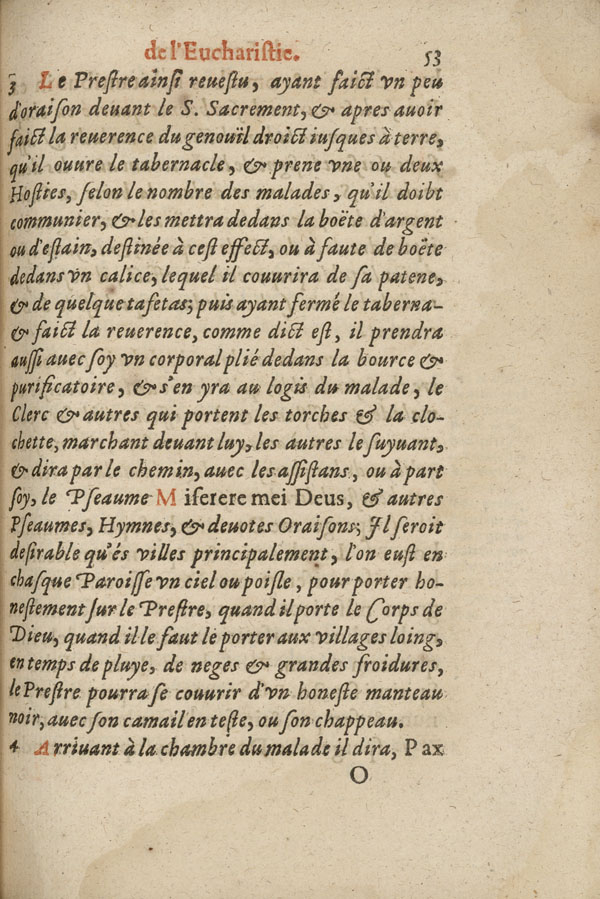 de l'Eucharistie. 53
3 Le Prestre ainsi reuestu, ayant faict vn peu
d'oraison deuant le S. Sacrement, & apres auoir
faict la reuerence du genouïl droict iusques à terre,
qu'il ouure le tabernacle, & prene vne ou deux
Hosties, selon le nombre des malades, qu'il doibt
communier, & les mettra dedans la boëte d'argent
ou d'estain, destinée à cest effect, ou à faute de boëte
dedans vn calice, lequel il couurira de sa patene,
& de quelque tafetas; puis ayant fermé le taberna-
& faict la reuerence, comme dict est, il prendra
aussi auec soy vn corporal plié dedans la bource &
purificatoire, & s'en yra au logis du malade, le
Clerc & autres qui portent les torches & la clo-
chette, marchant deuant luy, les autres le suyuant,
& dira par le chemin, auec les assistans, ou à part
soy, le Pseaume Miserere mei Deus, & autres
Pseaumes, Hymnes, & deuotes Oraisons; Il seroit
desirable qu'és villes principalement, l'on eust en
chasque Paroisse vn ciel ou poisle, pour porter ho-
nestement sur le Prestre, quand il porte le Corps de
Dieu, quand il le faut le porter aux villages loing,
en temps de pluye, de neges & grandes froidures,
le Prestre pourra se couurir d'vn honeste manteau
noir, auec son camail en teste, ou son chappeau.
4 Arriuant à la chambre du malade il dira, Pax
O